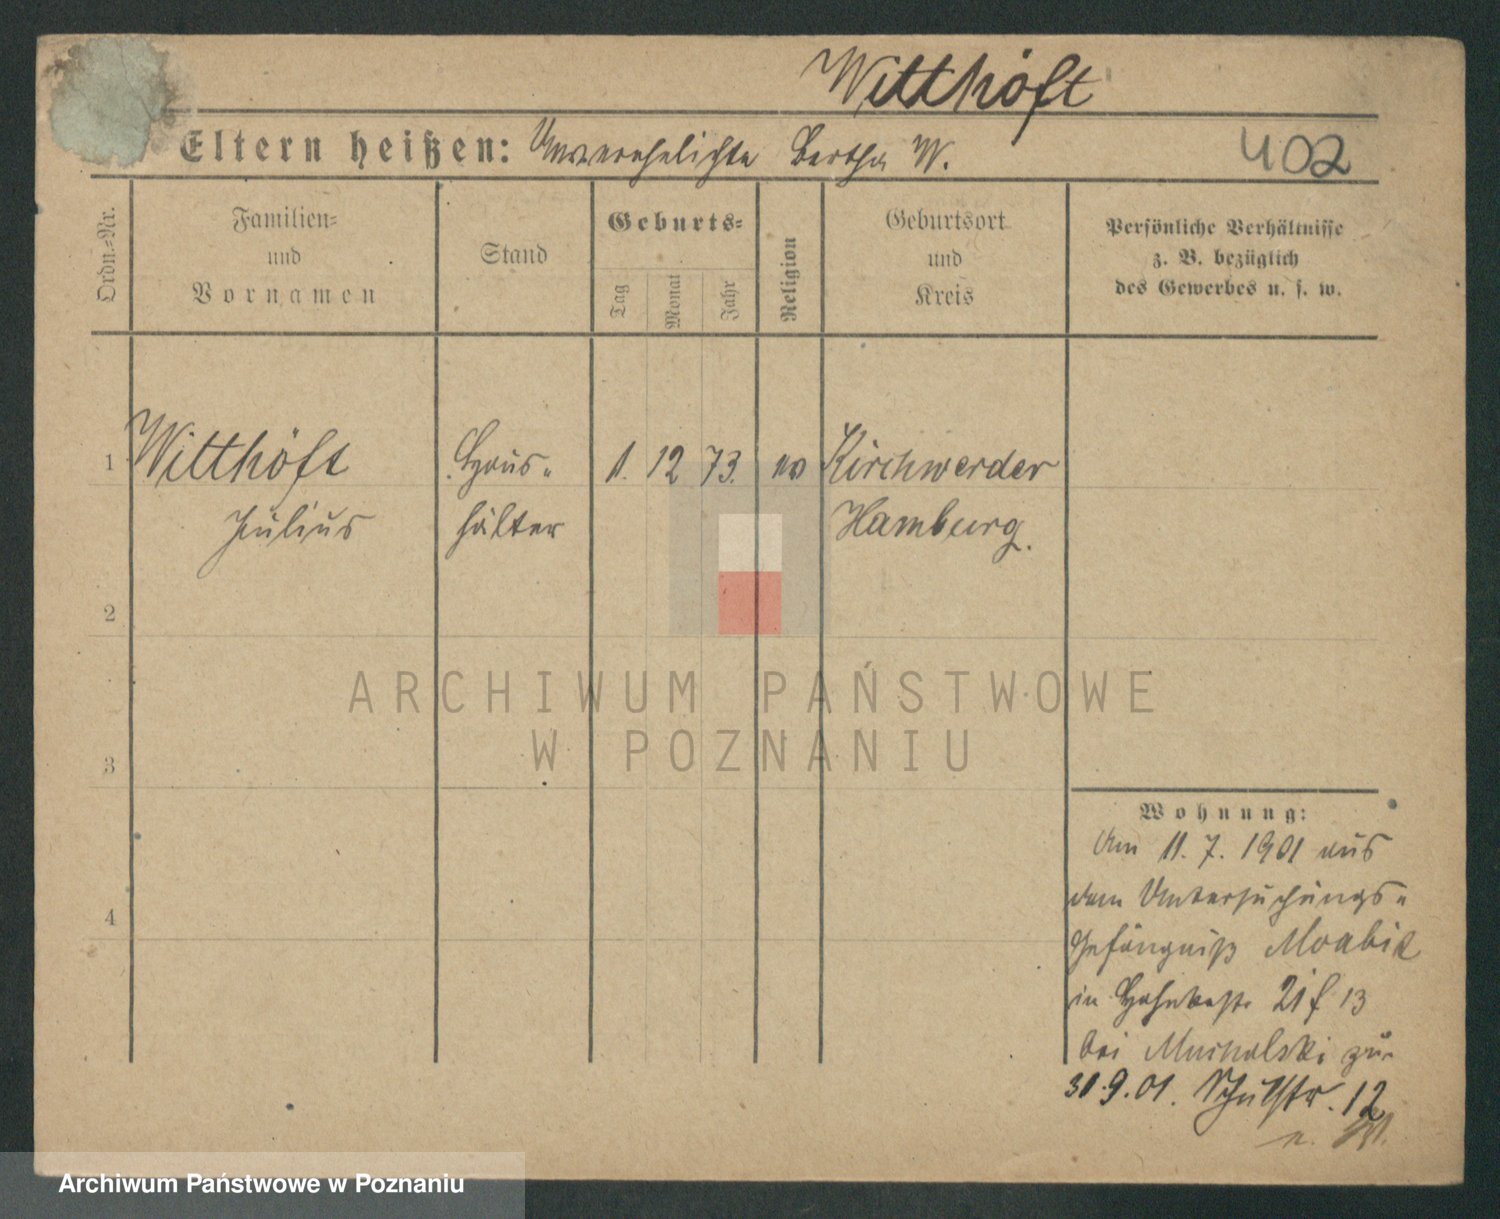 Witthöft
Eltern heißen: Unverehelichte Bertha W.
402
Ordn.-Nr.
Familien-
und
Vornamen
Stand
Geburts-
Tag
Monat
Jahr
Religion
Geburtsort
und
Kreis
Persönliche Verhältnisse
z. B. bezüglich
des Gewerbes u. s. w.
1 Witthöft Haus- 1. 12 73. ev Kirchwerder
Julius hälter Hamburg.
2
3
4
ARCHIWUM PAŃSTWOWE
W POZNANIU
Wohnung:
Am 11. 7. 1901 aus
dem Untersuchungs-
Gefängniß Moabit
in 21 13
bei zu.
9. 01. Schulstr. 12
Archiwum Państwowe w Poznaniu